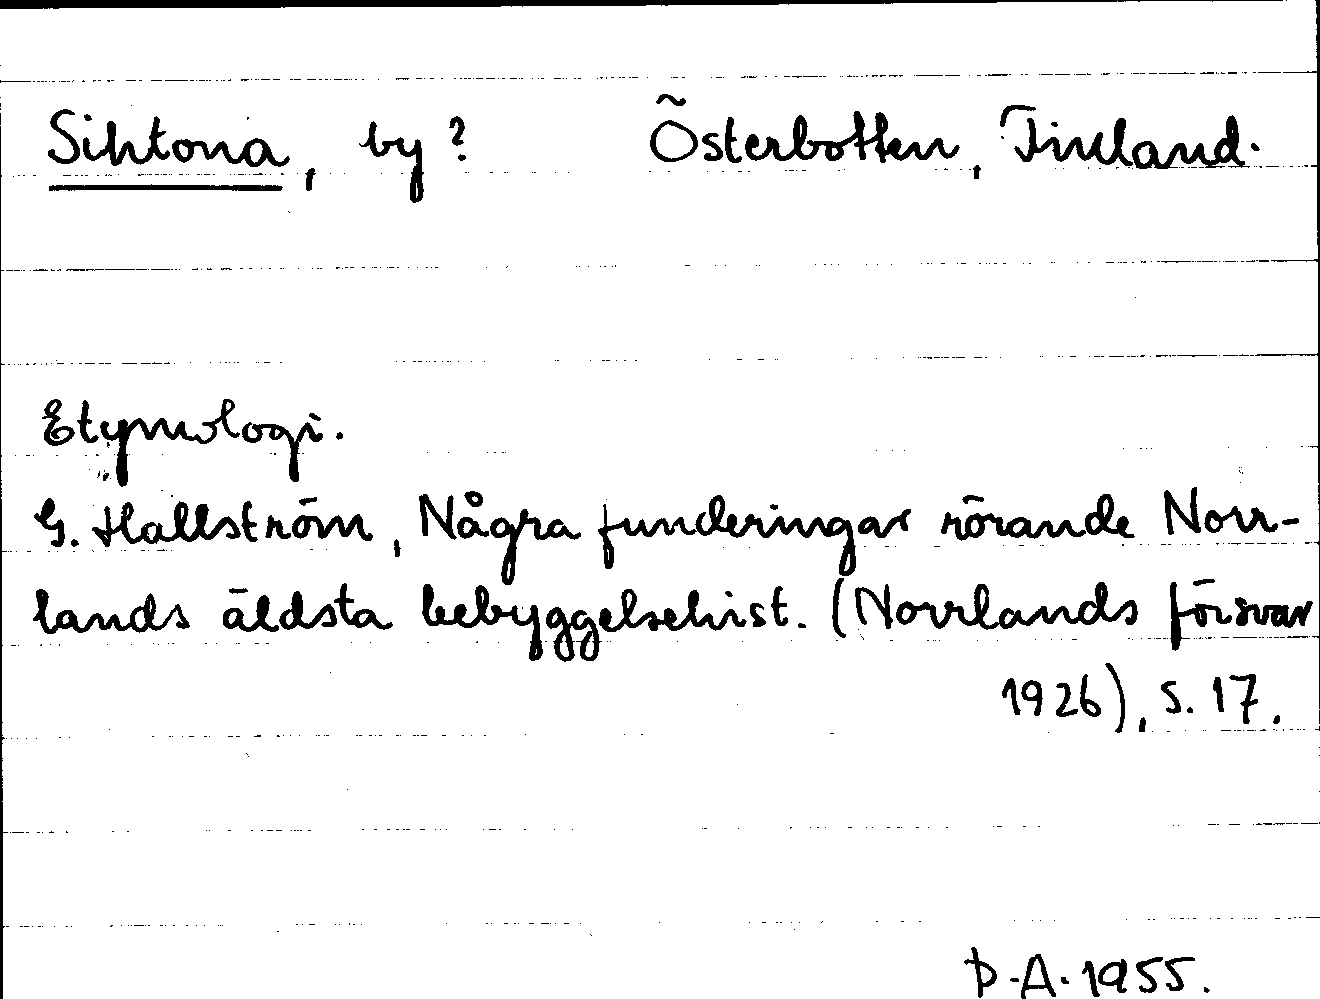 Sihtona, by? Österbotten, Finland.
Etymologi.
G. Hallström, Några funderingar rörande Norr-
lands äldsta bebyggelsehist. (Norrlands försvar
1926), s. 17.
Þ.A. 1955.